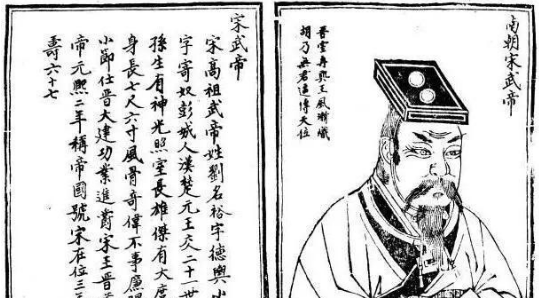 南朝宋武帝
晉室再興王風漸熾
胡乃無君遄傳天位
宋武帝
宋高祖武帝姓劉名裕字德輿小
字寄奴彭城人漢楚元王交二十一世
孫生有神光照室長雄傑有大度
身長七尺六寸風骨奇偉不事廉
小節仕晉大建功業進爵宋王晉
帝元熙二年稱帝國號宋在位三
壽六十七